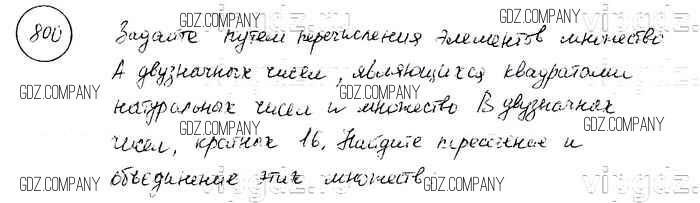 800
Задайте путем перечисления элементов множество
А двузначных чисел, являющихся квадратами
натуральных чисел и множество В двузначных
чисел, кратных 16. Найдите пересечение и
объединение этих множеств.
GDZ.COMPANY GDZ.COMPANY GDZ.COMPANY
GDZ.COMPANY GDZ.COMPANY GDZ.COMPANY
GDZ.COMPANY GDZ.COMPANY GDZ.COMPANY
GDZ.COMPANY GDZ.COMPANY GDZ.COMPANY